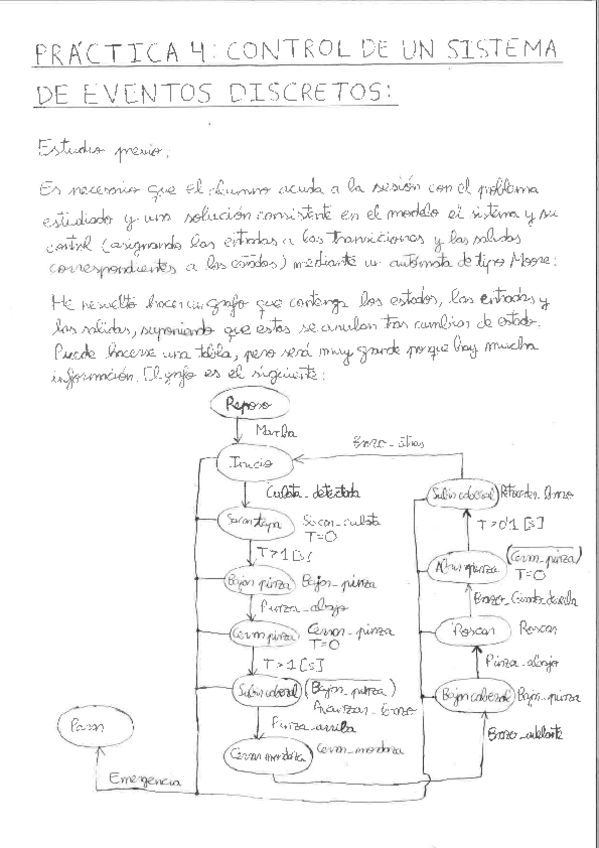 PRÁCTICA 4: CONTROL DE UN SISTEMA
DE EVENTOS DISCRETOS:
Estudio previo:
Es necesario que el alumno acuda a la sesión con el problema
estudiado y una solución consistente en el modelo el sistema y su
control (asignando las entradas a las transiciones y las salidas
correspondientes a los estados) mediante un autómata de tipo Moore:
He resuelto hacer un grafo que contenga los estados, las entradas y
las salidas, suponiendo que estas se anulan tras cambios de estado.
Puede hacerse una tabla, pero será muy grande porque hay mucha
información. El grafo es el siguiente:
Reposo
Marcha
Brazo_atras
Inicio
Culata_detectada
Subir cabezal
Retroceder_brazo
Sacar tapa
Sacar_culata
T=0
T>0'1 [s]
T>1[s]
Abrir pinza
(Cerrar_pinza)
T=0
Bajar pinza
Bajar_pinza
Pinza_abajo
Roscar
Roscar
Cerrar pinza
Cerrar_pinza
T=0
T>1[s]
Pinza_abajo
Subir cabezal
(Bajar_pinza)
Avanzar_brazo
Bajar cabezal
Bajar_pinza
Pinza_arriba
Brazo_adelante
Paro
Cerrar mordaza
Cerrar_mordaza
Emergencia